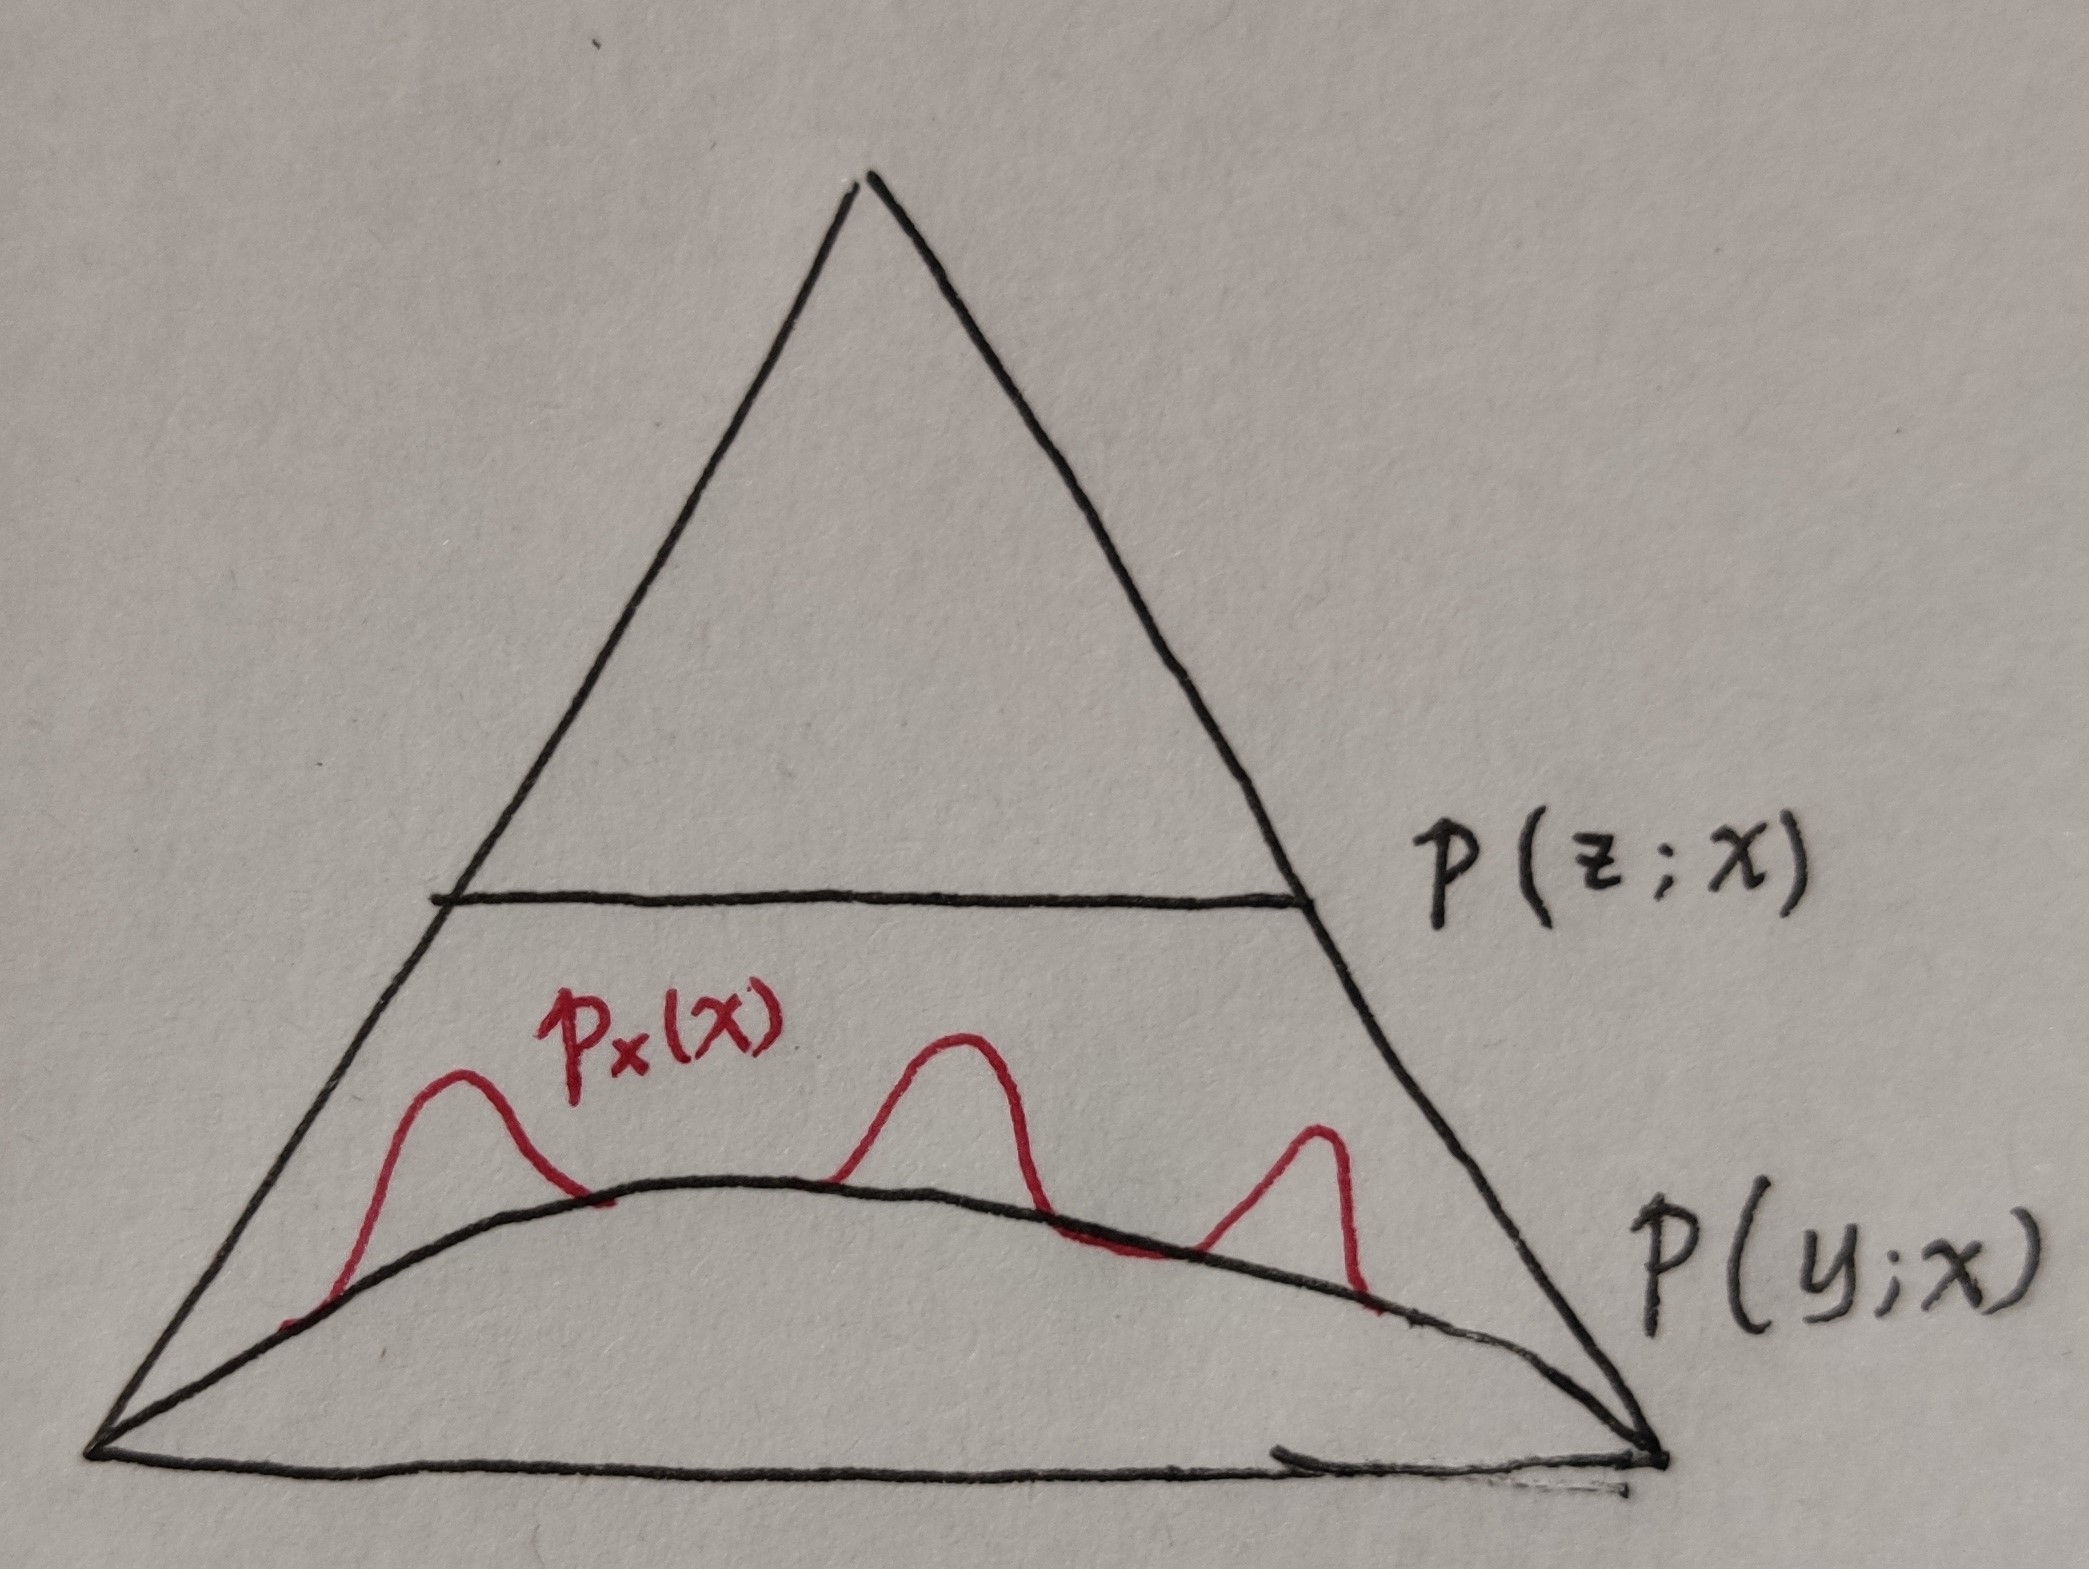 p(z;x)
px(x)
p(y;x)